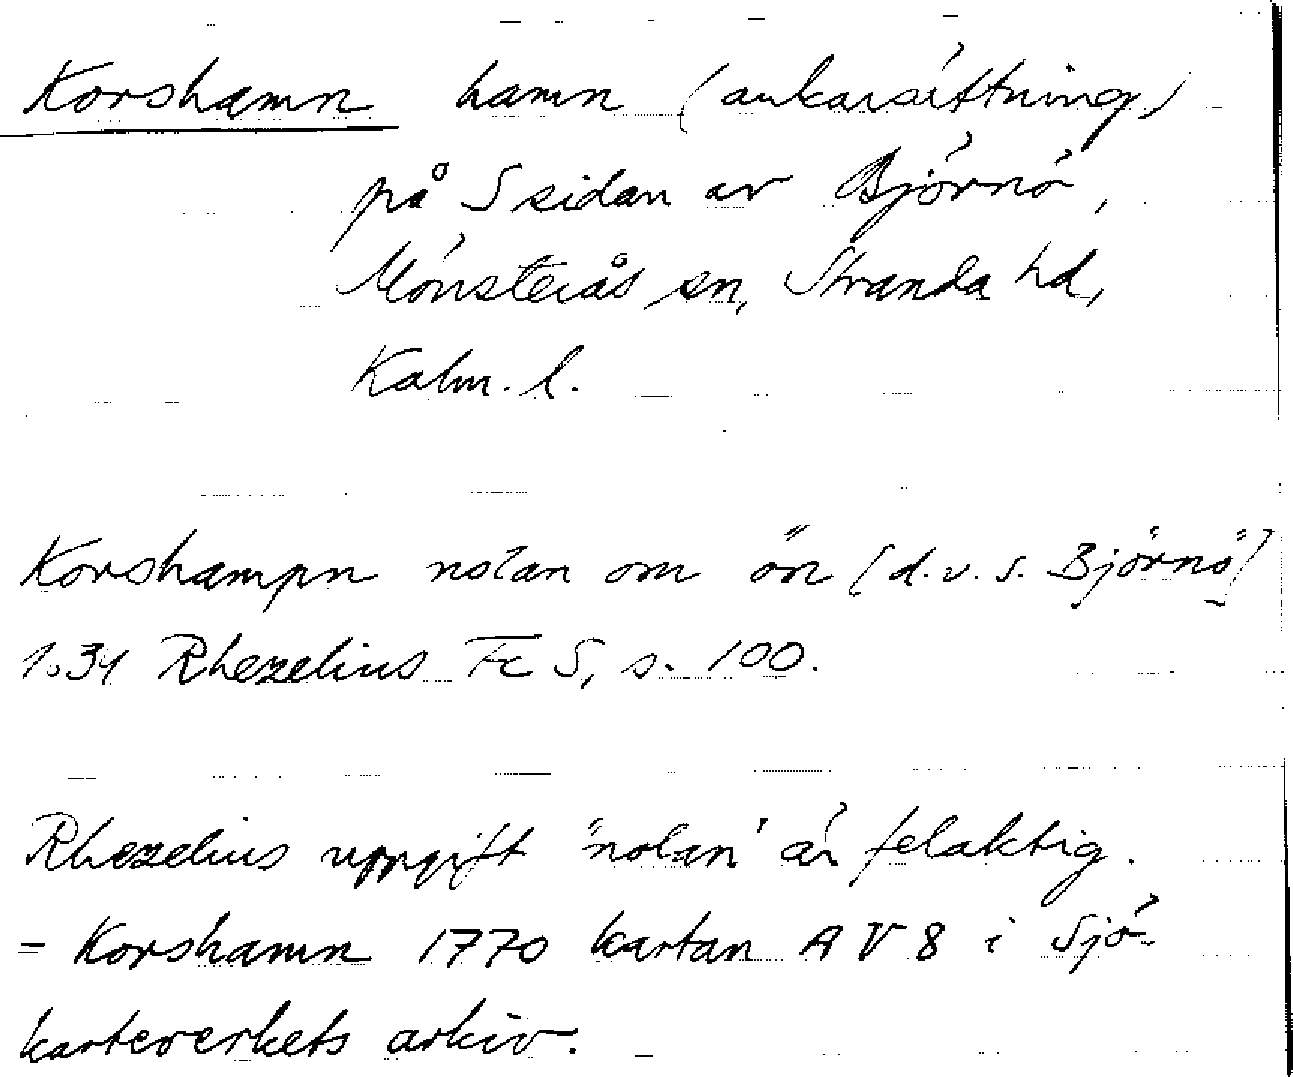 Korshamn hamn (ankarsättning)
på S sidan av Björnö,
Mönsterås sn, Stranda hd,
Kalm. l.
Korshampn nolan om ön [d.v.s. Björnö]
1634 Rhezelius Fc 5, s. 100.
Rhezelius uppgift "nolan" är felaktig.
= Korshamn 1770 kartan A V 8 i Sjö-
karteverkets arkiv.